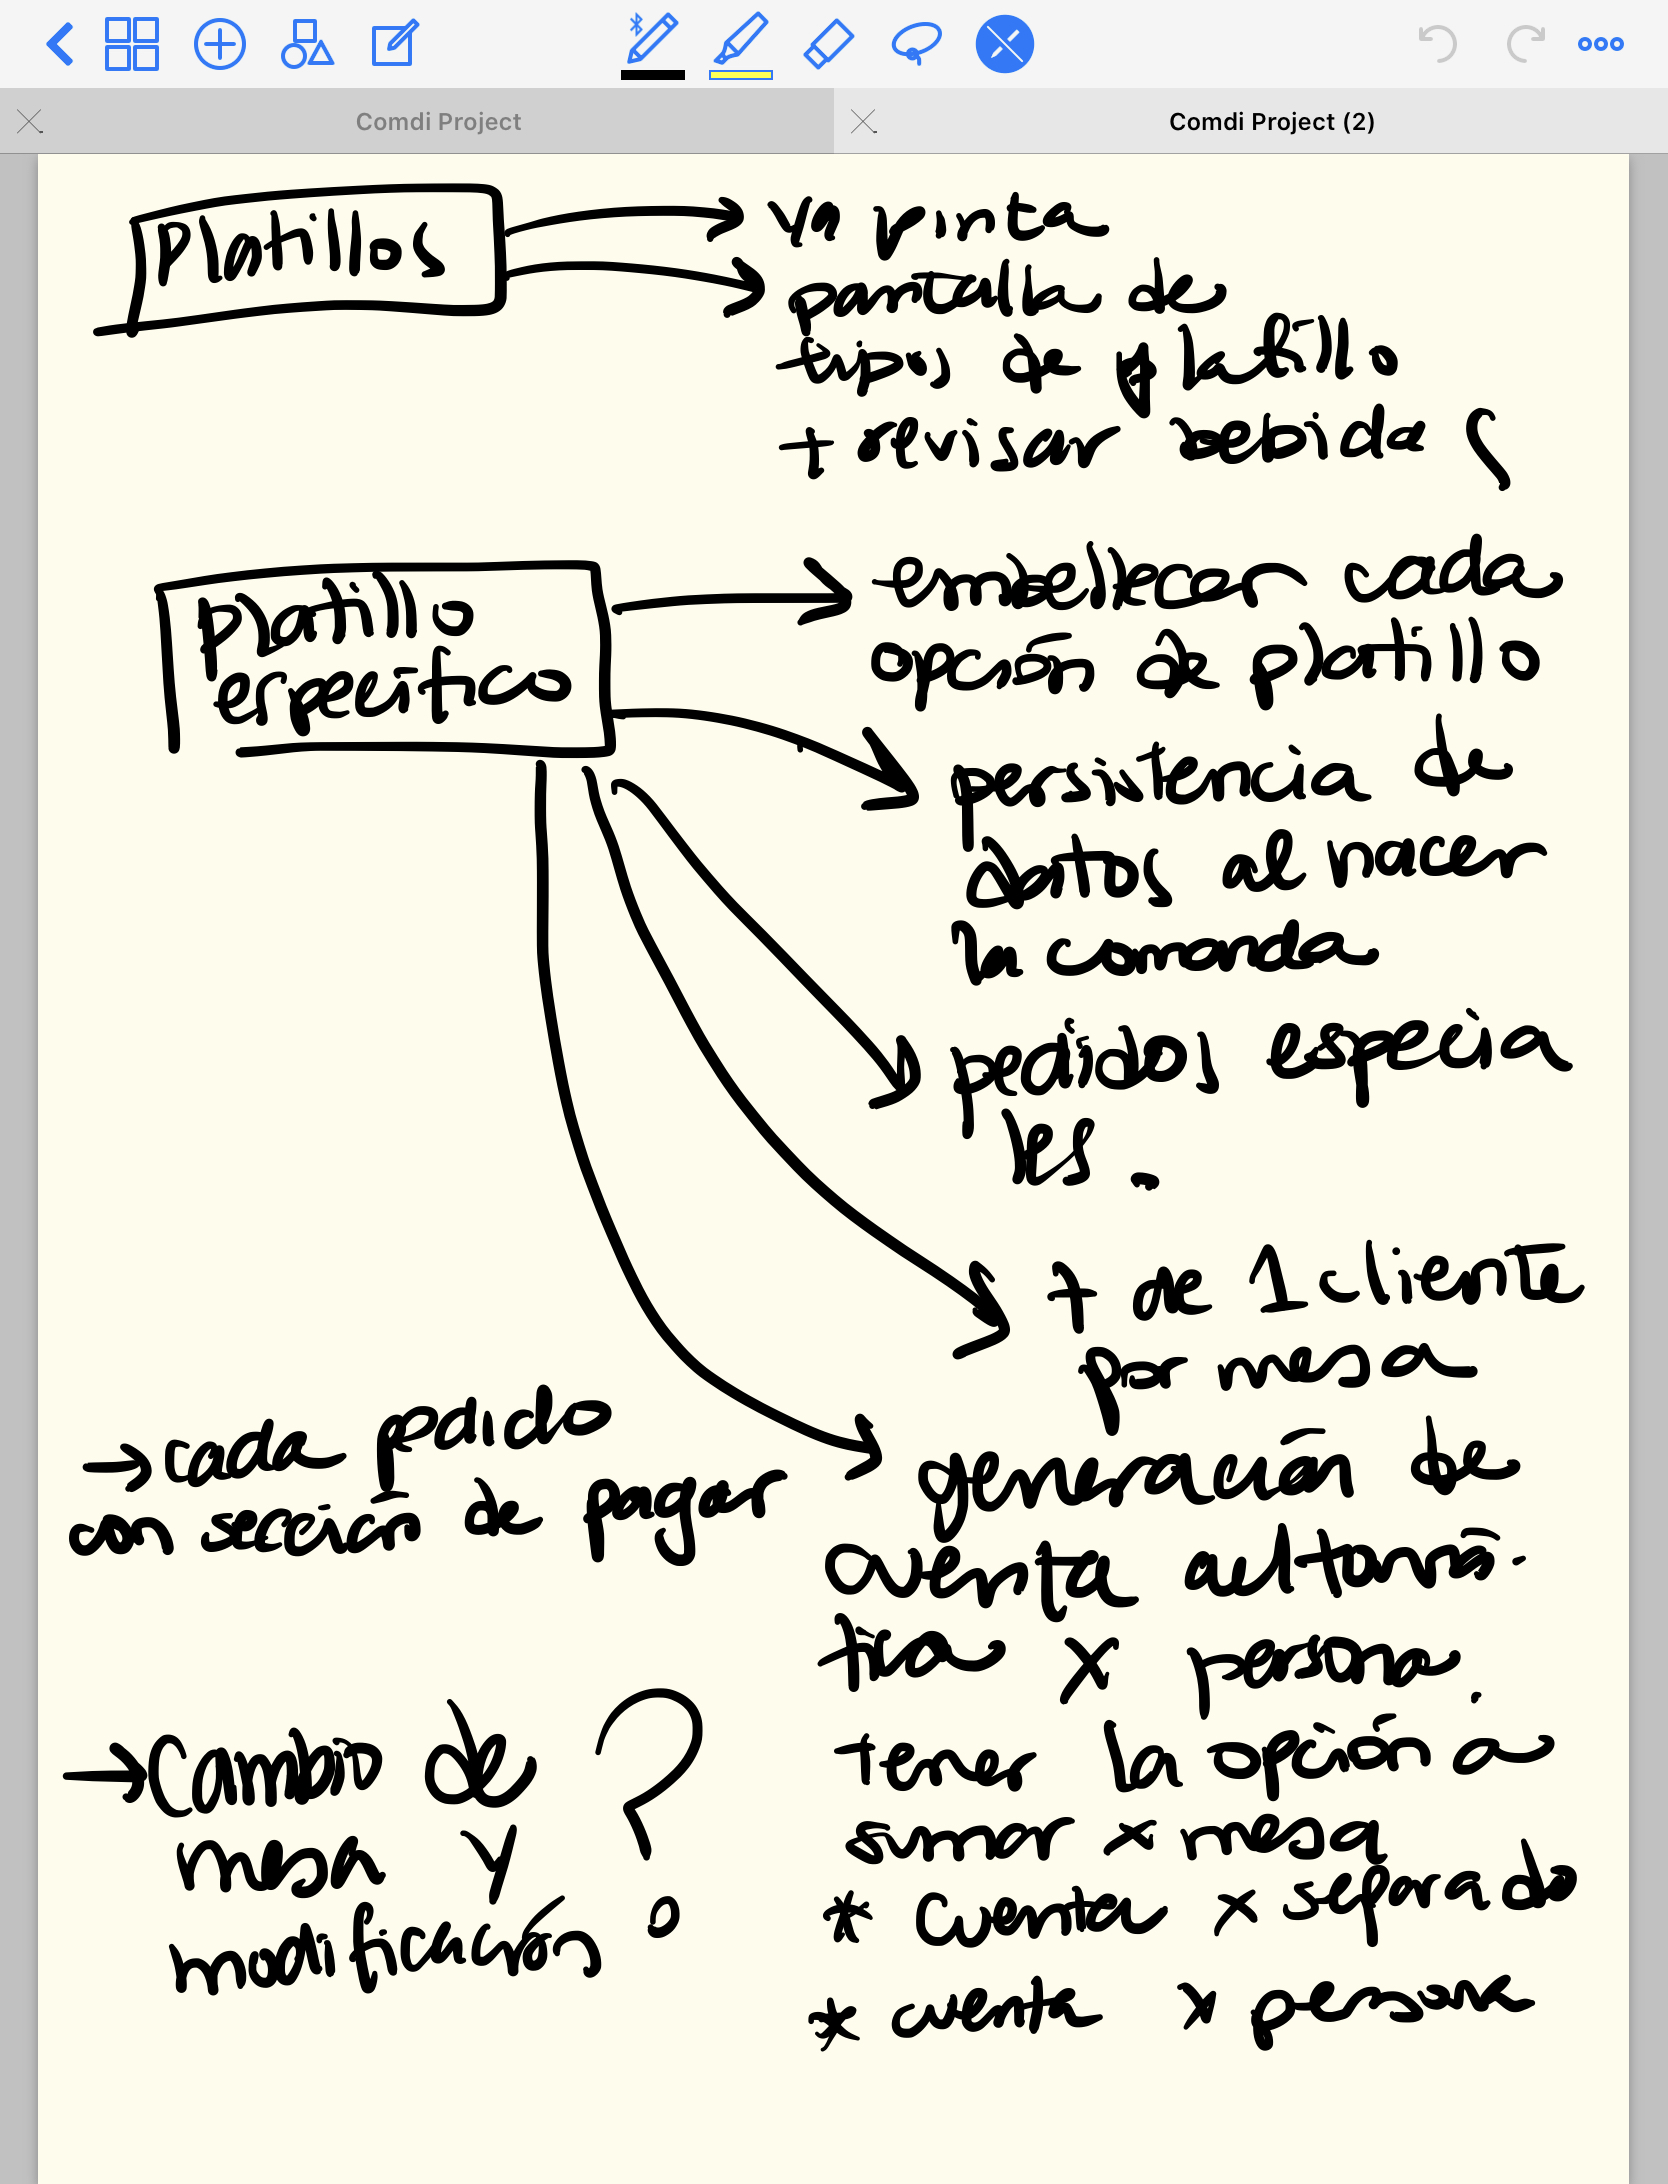 Comdi Project
Comdi Project (2)
Platillos
ya pinta
pantalla de
tipos de platillo
+ revisar bebida
platillo
específico
embellecer cada
opción de platillo
persistencia de
datos al hacer
la comanda
pedidos especia
les.
+ de 1 cliente
por mesa
generación de
cuenta automá-
tica x persona.
tener la opción a
sumar x mesa
* cuenta x separado
* cuenta x persona
→ cada pedido
con sección de pagar
→ Cambio de
mesa y
modificación ?